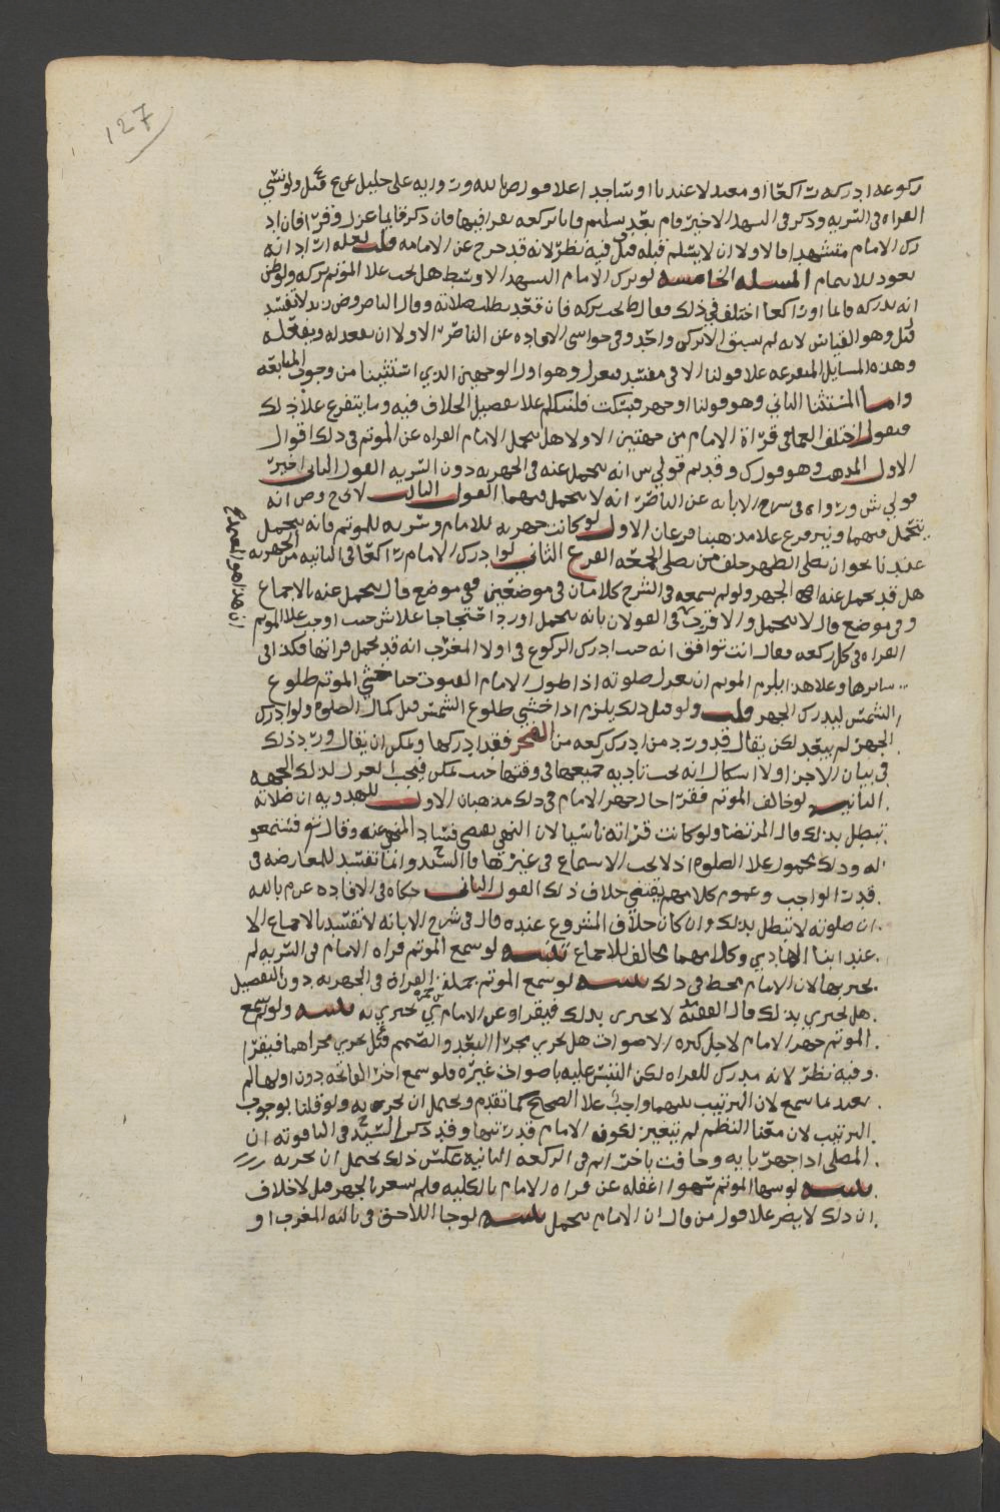 127
ركوعه ادركه راكعا او معتدلا عندنا او ساجدا علا قول ص بالله ورواية على خليل عن ع قيل ولو نسي
القراه في السريه وذكر في التشهد الاخير قام بعد تسليم فاتا بركعه يقرا فيها فان ذكر قايما عزل وقرا فان اد
رك الامام متشهدا فالاولا ان لا يسلم قبله قيل فيه نظر لانه قد خرج عن الامامه قلت لعله اراد انه
يعود للايتمام المسله الخامسه لو ترك الامام التشهد الاوسط هل يجب علا الموتم تركه ولو ظن
انه يدركه قايما او راكعا اختلف في ذلك فقال ط يجب تركه فان قعد بطلت صلاته وقال الناصر وض زيد لا تفسد
قيل وهو القياس لانه لم يسبق الا بركن واحد وفي حواشي الافاده عن الناصر الاولا ان يقعد له ويفعله
وهذه المسايل المتفرعه علا قولنا الا في مفسد فيعزل وهو اول الوجهين الذي استثنينا من وجوب المتابعه
واما المستثنا الثاني وهو قولنا او جهر فيسكت فلنتكلم علا تفصيل الخلاف فيه وما يتفرع علا ذلك
فنقول اختلف العلما في قراة الامام من جهتين الاولا هل يتحمل الامام القراه عن الموتم في ذلك اقوال
الاول المذهب وهو قول ك وقديم قولي ش انه يتحمل عنه في الجهريه دون السريه القول الثاني اخير
قولي ش ورواه في شرح الابانه عن الناصر انه لا يتحمل فيهما القول الثالث لاح وص انه
يتحمل فيهما ونير فرع علا مذهبنا فرعان الاول لو كانت جهريه للامام وسريه للموتم فانه يتحمل
عندنا نحو ان يصلي الظهر خلف من يصلي الجمعه الفرع الثاني لو ادرك الامام راكعا في الثانيه من الجهريه
هل قد تحمل عنه الجهر ولو لم يسمعه في الشرح كلامان في موضعين ففي موضع قال يتحمل عنه بالاجماع
وفي موضع قال لا يتحمل والاقرب في القولان بانه يتحمل اورد احتجاجا علا ش حيث اوجب علا الموتم
القراه في كل ركعه فقال انت توافق انه حيث ادرك الركوع في اولا المغرب انه قد تحمل قراتها فكذا في
سايرها وعلا هذا يلزم الموتم ان يعزل صلوته اذا طول الامام القنوت حتا خشي الموتم طلوع
الشمس ليدرك الجهر قلت ولو قيل ذلك يلزم اذا خشي طلوع الشمس قبل كمال الصلوه ولو ادرك
الجهر لم يبعد لكن يقال قد ورد من ادرك ركعه من الفجر فقد ادركها ويمكن ان يقال ورد ذلك
في بيان الاجزا ولا اشكال انه يجب تاديه جميعها في وقتها حيث تمكن فيجب العزل لذلك الجهه
الثانيه لو خالف الموتم فقرا حال جهر الامام في ذلك مذهبان الاول للهدويه ان صلاته
تبطل بذلك قال المرتضا ولو كانت قراته ناسيا لان النهي يقتضي فساد المنهي عنه وقال تعو فاستمعو
له وذلك محمول علا الصلوه اذ لا يجب الاستماع في غيرها قال السيد وانما تفسد للمعارضه في
قدر الواجب وعموم كلامهم يقتضي خلاف ذلك القول الثاني حكاه في الافاده عن م بالله
ان صلوته لا تبطل بذلك وان كان خلاف المشروع عنده قال في شرح الابانه لا تفسد بالاجماع الا
عند ابنا الهادي وكلامهما مخالف للاجماع تنبيه لو سمع الموتم قراه الامام في السريه لم
يجتز بها لان الامام مخط في ذلك تنبيه لو سمع الموتم جملة القراه في الجهريه دون التفصيل
هل تجزي بذلك قال الفقيه لا يجتزى بذلك فيقرا وعن الامام ي تجزي به تنبيه ولو لم يسمع
الموتم جهر الامام لاجل كثره الاصوات هل يجري مجرا البعد والصمم قيل يجري مجراهما فيقرا
وفيه نظر لانه مدرك للقراه لكن التبس عليه باصوات غيره فلو سمع اخر الفاتحه دون اولها لم
يعتد بما سمع لان الترتيب بينهما واجب علا الصحيح كما تقدم ويحتمل ان تجزيه ولو قلنا بوجوب
الترتيب لان معنا النظم لم يتغير لكون الامام قد رتبها وقد ذكر السيد في الياقوته ان
المصلي اذا جهر بايه وخافت باخرا ثم في الركعه الثانيه عكس ذلك يحتمل ان تجزيه
تنبيه لو سها الموتم سهوا اغفله عن قراه الامام بالكليه فلم يشعر بالجهر قيل لا خلاف
ان ذلك لا يضر علا قول من قال ان الامام يتحمل تنبيه لو جا اللاحق في ثالثه المغرب او